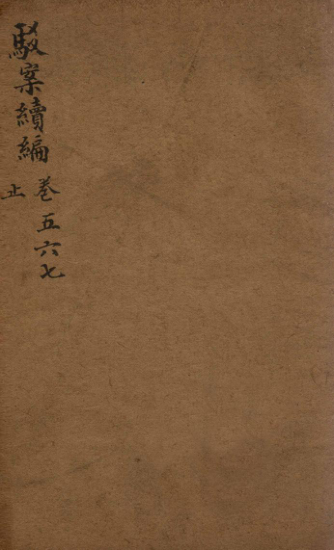 駁案續編
卷五六七
止